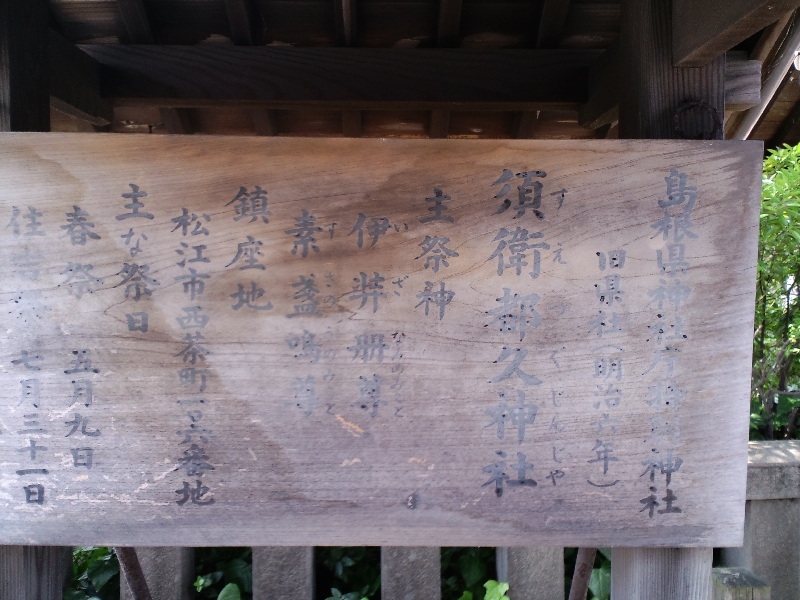 島根県神社庁特別神社
旧県社(明治六年)
すえつぐじんじや
須衛都久神社
主祭神
いざなみのみこと
伊弉冊尊
すさのおのみこと
素盞鳴尊
鎮座地
松江市西茶町一〇六番地
主な祭日
春祭 五月九日
住吉祭 七月三十一日